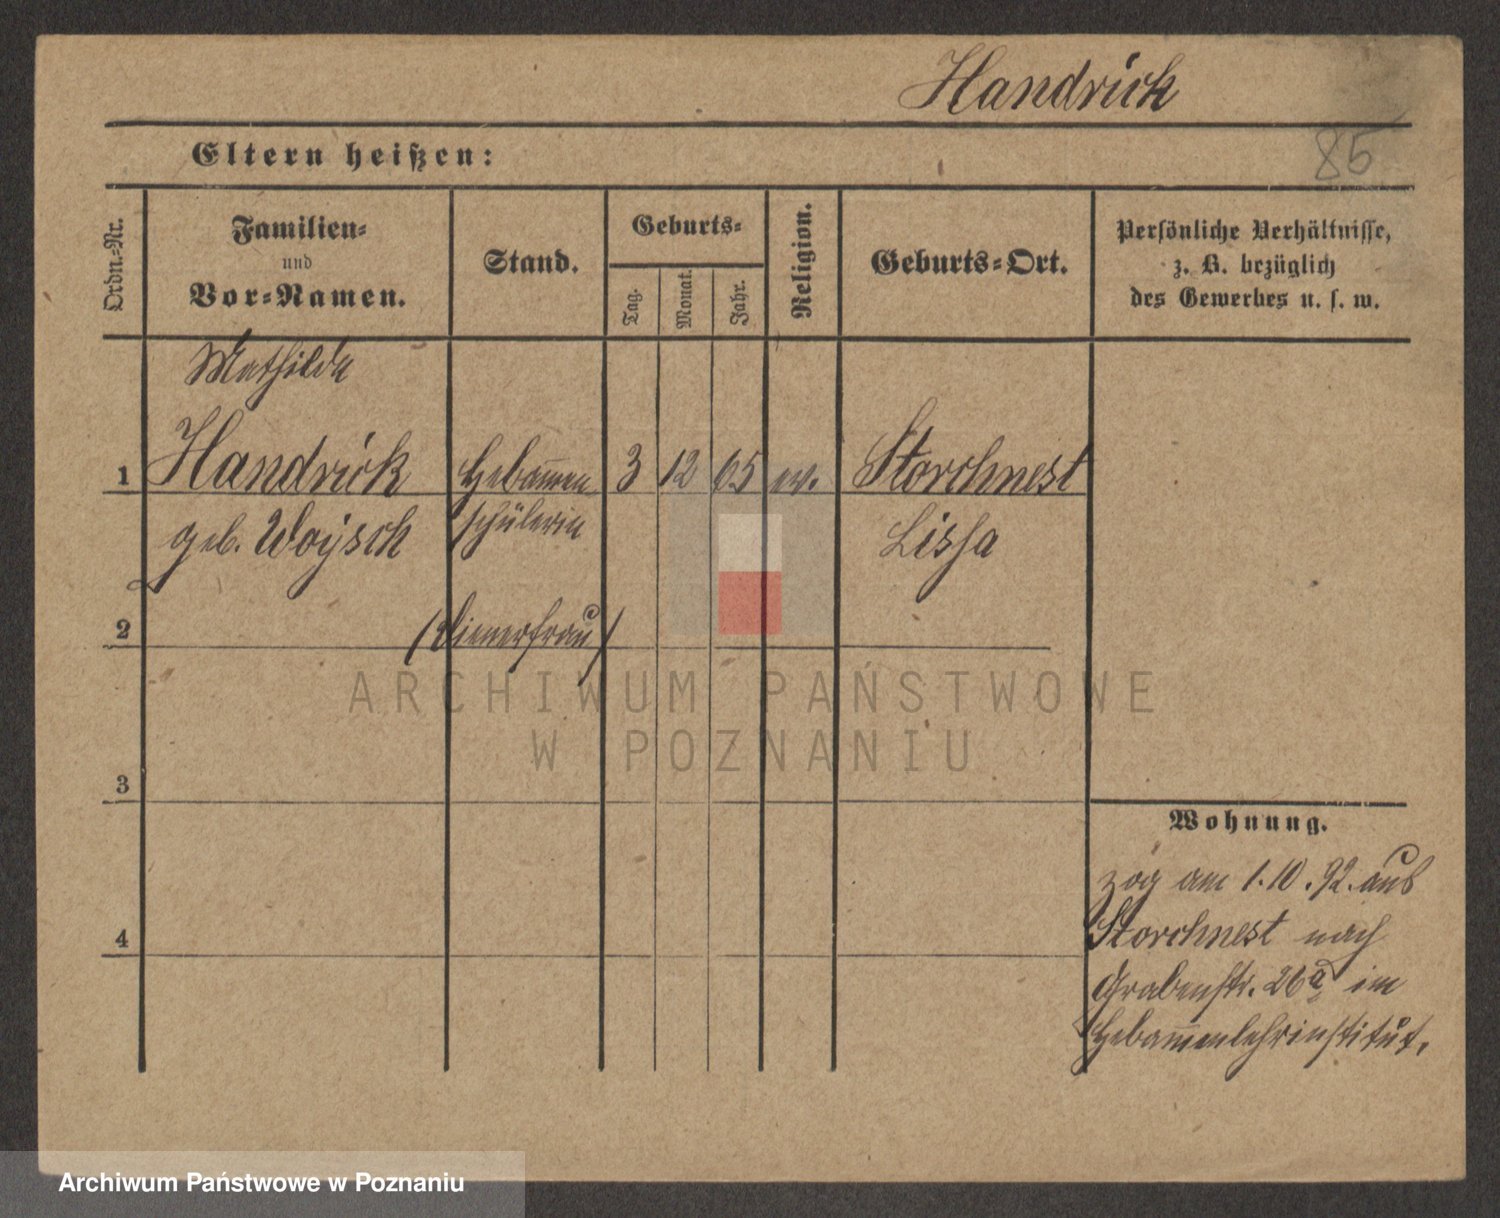 Handrick
85
Eltern heißen:
Ordn.-Nr.
Familien-
und
Vor-Namen.
Stand.
Geburts-
Tag.
Monat.
Jahr.
Religion.
Geburts-Ort.
Persönliche Verhältnisse,
z. B. bezüglich
des Gewerbes u. s. w.
Mathilde
1 Handrick Hebam̅en 3 12 65 ev. Storchnest
geb. Woysch schülerin Lissa
2 (Dienerfrau)
ARCHIWUM PAŃSTWOWE
W POZNANIU
3
Wohnung.
zog am 1.10.92. aus
4 Storchnest nach
Grabenstr. 26a im
Hebam̅enlehrinstitut.
Archiwum Państwowe w Poznaniu